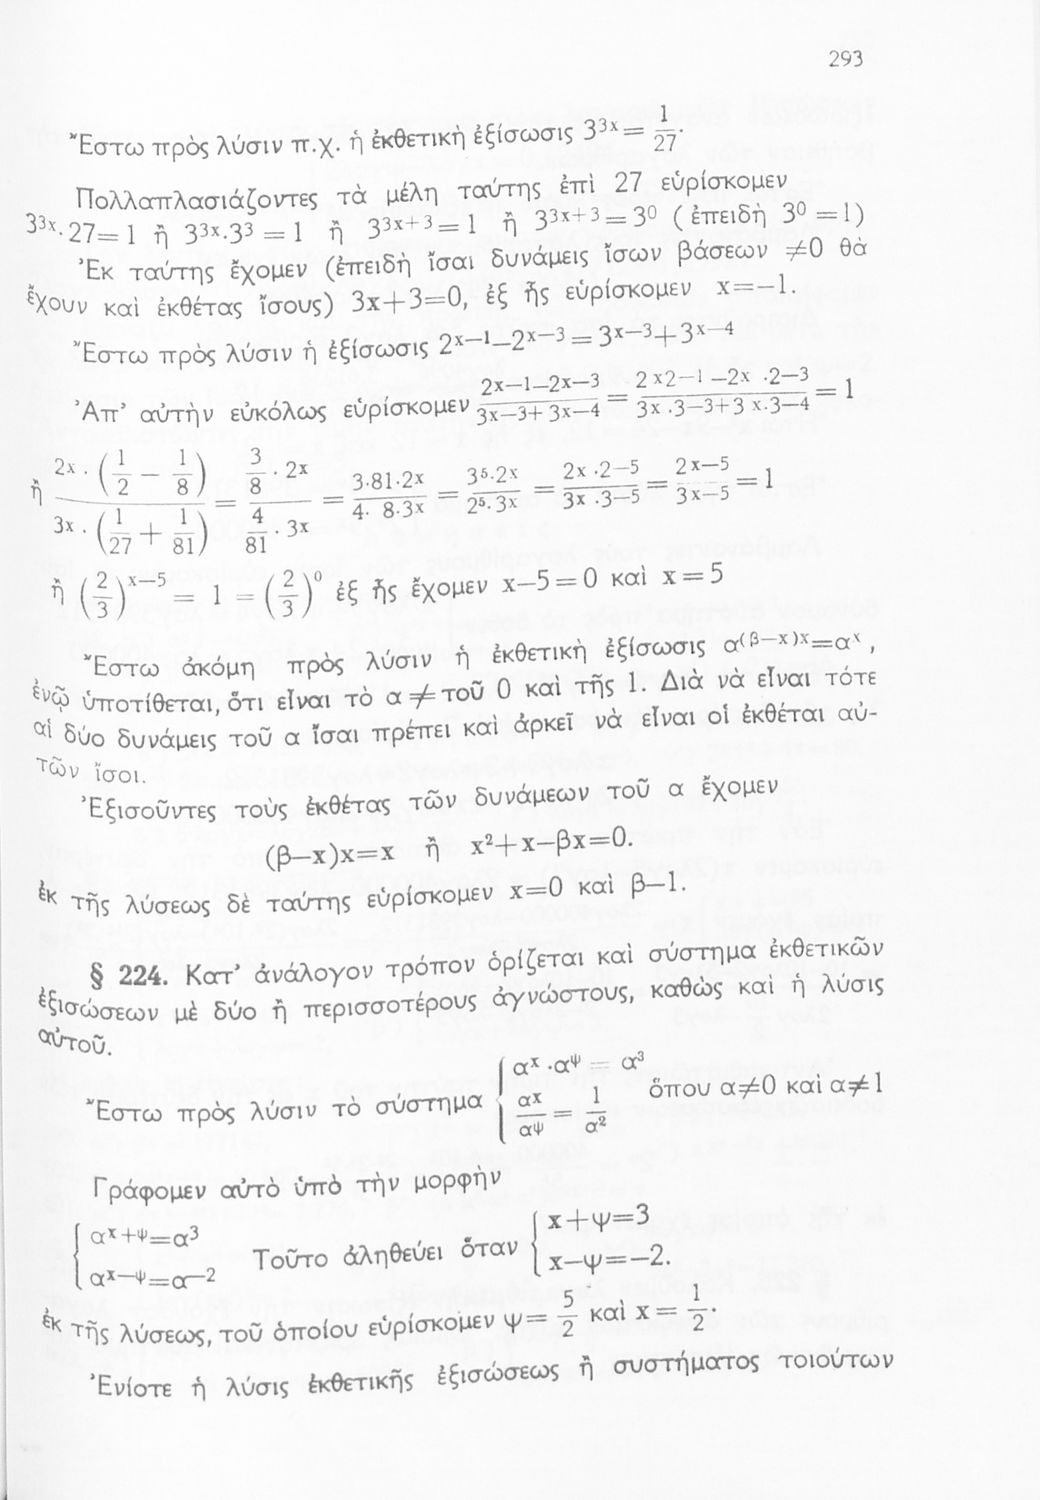 293
Ἔστω πρὸς λύσιν π.χ. ἡ ἐκθετικὴ ἐξίσωσις 3³ˣ = 1/27.
Πολλαπλασιάζοντες τὰ μέλη ταύτης ἐπὶ 27 εὑρίσκομεν
3³ˣ·27=1 ἢ 3³ˣ·3³ = 1 ἢ 3³ˣ⁺³ = 1 ἢ 3³ˣ⁺³ = 3⁰ (ἐπειδὴ 3⁰ =1)
Ἐκ ταύτης ἔχομεν (ἐπειδὴ ἴσαι δυνάμεις ἴσων βάσεων ≠0 θὰ
ἔχουν καὶ ἐκθέτας ἴσους) 3x+3=0, ἐξ ἧς εὑρίσκομεν x=—1.
Ἔστω πρὸς λύσιν ἡ ἐξίσωσις 2ˣ⁻¹—2ˣ⁻³ = 3ˣ⁻³+3ˣ⁻⁴
Ἀπ’ αὐτὴν εὐκόλως εὑρίσκομεν (2x—1—2x—3)/(3x—3+3x—4) = (2x2—1—2x·2—3)/(3x·3—3+3x·3—4) = 1
ἢ (2ˣ·(1/2 — 1/8))/(3ˣ·(1/27 + 1/81)) = (3/8·2ˣ)/(4/81·3ˣ) = (3·81·2ˣ)/(4·8·3ˣ) = (3⁵·2ˣ)/(2⁵·3ˣ) = (2x·2—5)/(3x·3—5) = (2x—5)/(3x—5) = 1
ἢ (2/3)ˣ⁻⁵ = 1 = (2/3)⁰ ἐξ ἧς ἔχομεν x—5=0 καὶ x=5
Ἔστω ἀκόμη πρὸς λύσιν ἡ ἐκθετικὴ ἐξίσωσις α⁽ᵝ⁻ˣ⁾ˣ=αˣ,
ἐνῷ ὑποτίθεται, ὅτι εἶναι τὸ α≠τοῦ 0 καὶ τῆς 1. Διὰ νὰ εἶναι τότε
αἱ δύο δυνάμεις τοῦ α ἴσαι πρέπει καὶ ἀρκεῖ νὰ εἶναι οἱ ἐκθέται αὐ-
τῶν ἴσοι.
Ἐξισοῦντες τοὺς ἐκθέτας τῶν δυνάμεων τοῦ α ἔχομεν
(β—x)x=x ἢ x²+x—βx=0.
ἐκ τῆς λύσεως δὲ ταύτης εὑρίσκομεν x=0 καὶ β—1.
§ 224. Κατ’ ἀνάλογον τρόπον ὁρίζεται καὶ σύστημα ἐκθετικῶν
ἐξισώσεων μὲ δύο ἢ περισσοτέρους ἀγνώστους, καθὼς καὶ ἡ λύσις
αὐτοῦ.
Ἔστω πρὸς λύσιν τὸ σύστημα { αˣ·α^ψ = α³, αˣ/α^ψ = 1/α² ὅπου α≠0 καὶ α≠1
Γράφομεν αὐτὸ ὑπὸ τὴν μορφὴν
{ α^(x+ψ)=α³, α^(x—ψ)=α—² Τοῦτο ἀληθεύει ὅταν { x+ψ=3, x—ψ=—2.
ἐκ τῆς λύσεως, τοῦ ὁποίου εὑρίσκομεν ψ= 5/2 καὶ x = 1/2.
Ἐνίοτε ἡ λύσις ἐκθετικῆς ἐξισώσεως ἢ συστήματος τοιούτων